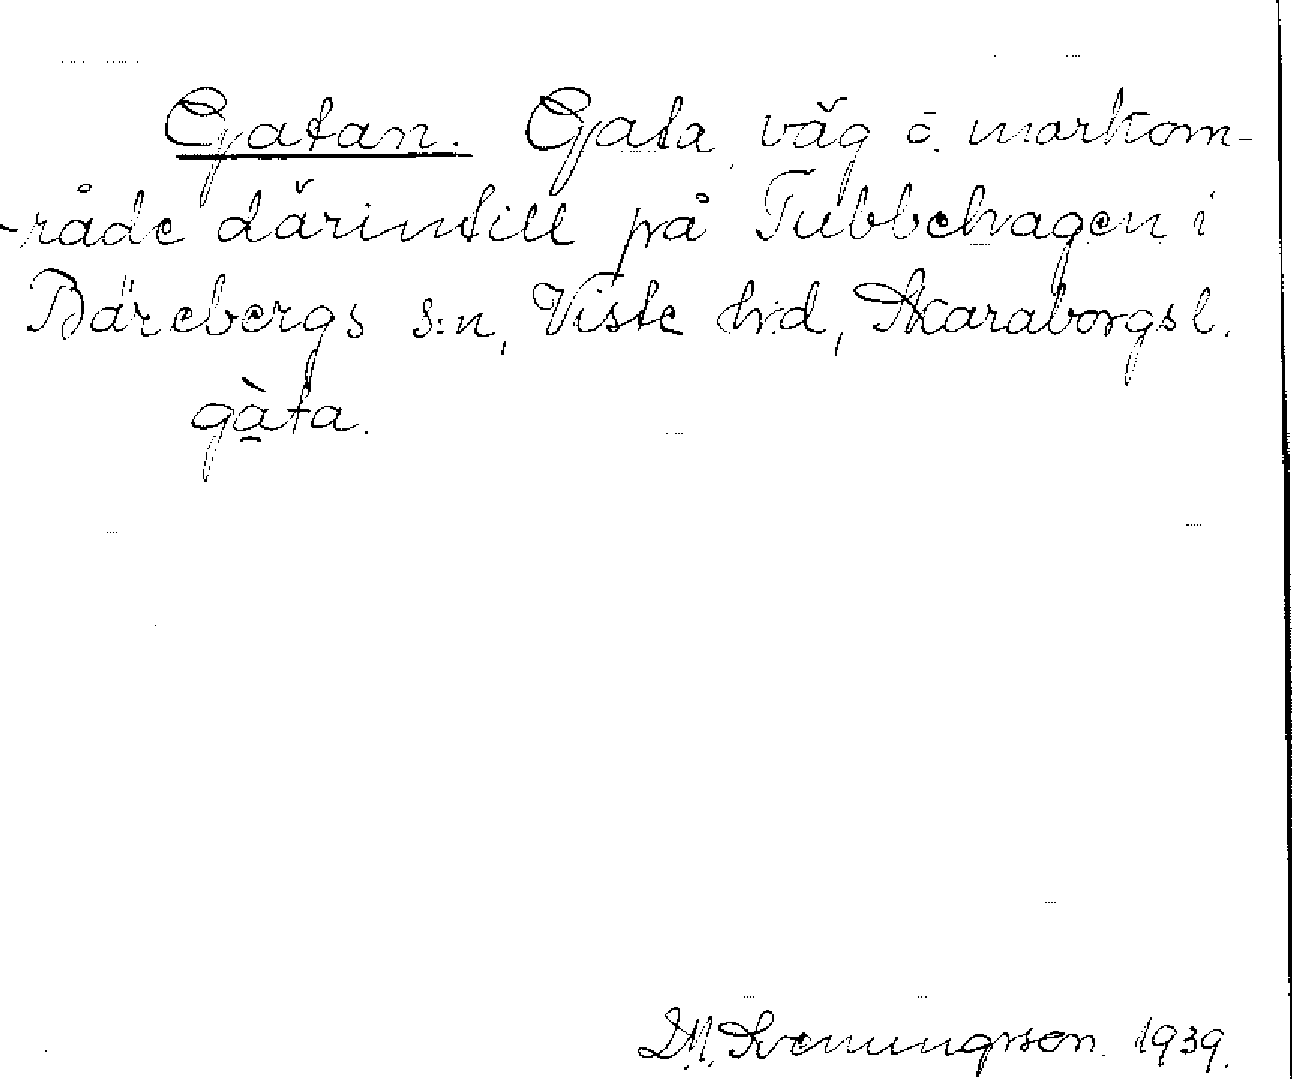 Gatan. Gata, väg o. markom-
-råde därintill på Tubbehagen i
Bärebergs s:n, Viste hrd, Skaraborgs l.
gà̱ta.
D.M. Svenningsson. 1939.